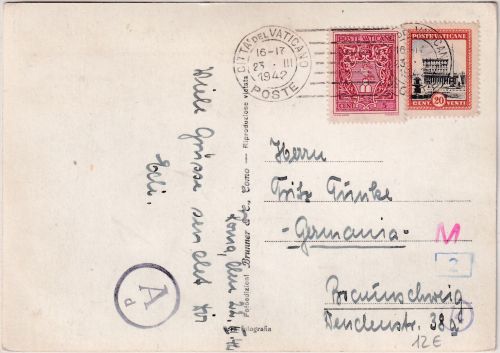 CITTA' DEL VATICANO
16-17
23 · III
1942
POSTE
POSTE VATICANE
CENT. 5
POSTE VATICANE
20
CENT. VENTI
Viele Grüsse sendet Dir
Edi.
Fotoedizioni Brunner & C. Como — Riproduzione vietata
Fotografia
Herrn
Fritz Funke
-Germania-
Braunschweig
38a
M
2
12€
A
d